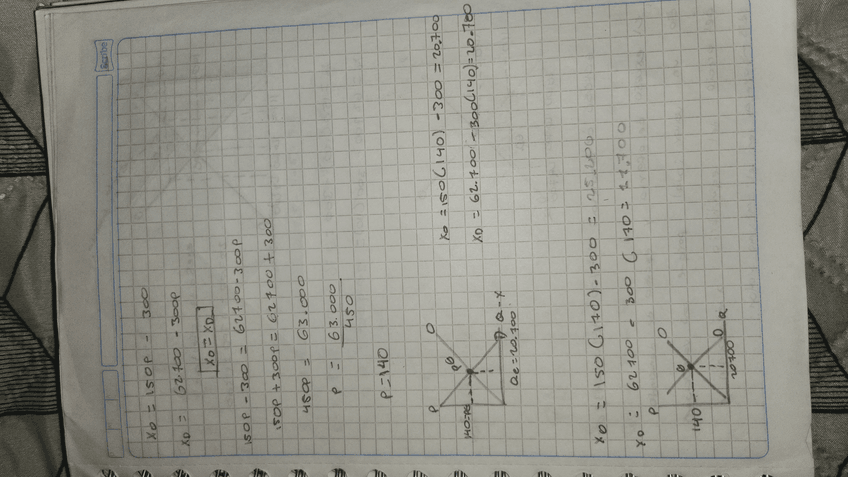 XO = 150P - 300
XD = 62700 - 300P
XO = XD
150P - 300 = 62700 - 300P
150P + 300P = 62700 + 300
450P = 63.000
P = 63.000
450
P = 140
P
O
PE
D
Q-X
Qe = 20,700
XO = 150(140) - 300 = 20,700
XD = 62.700 - 300(140) = 20.700
XO = 150(170) - 300 = 25,200
XD = 62700 - 300(170 = 11,700
P
O
140
D
Q
20700